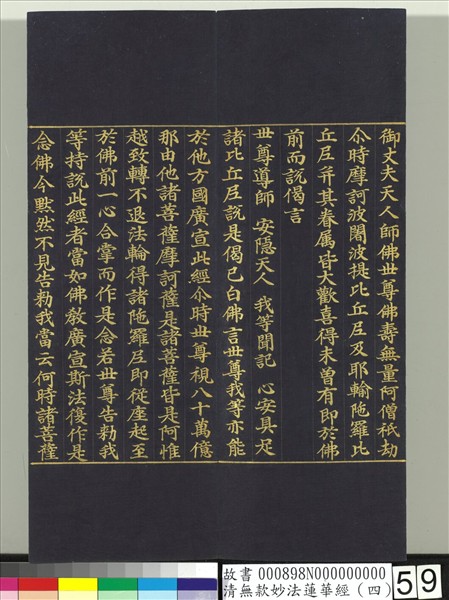 御丈夫天人師佛世尊佛壽無量阿僧祇劫
尒時摩訶波闍波提比丘尼及耶輸陁羅比
丘尼并其眷属皆大歡喜得未曾有即於佛
前而說偈言
世尊導師 安隱天人 我等聞記 心安具足
諸比丘尼說是偈已白佛言世尊我等亦能
於他方國廣宣此經尒時世尊視八十萬億
那由他諸菩薩摩訶薩是諸菩薩皆是阿惟
越致轉不退法輪得諸陁羅尼即從座起至
於佛前一心合掌而作是念若世尊告勑我
等持說此經者當如佛教廣宣斯法復作是
念佛今默然不見告勑我當云何時諸菩薩
故書 000898N000000000
清無款妙法蓮華經(四)
59